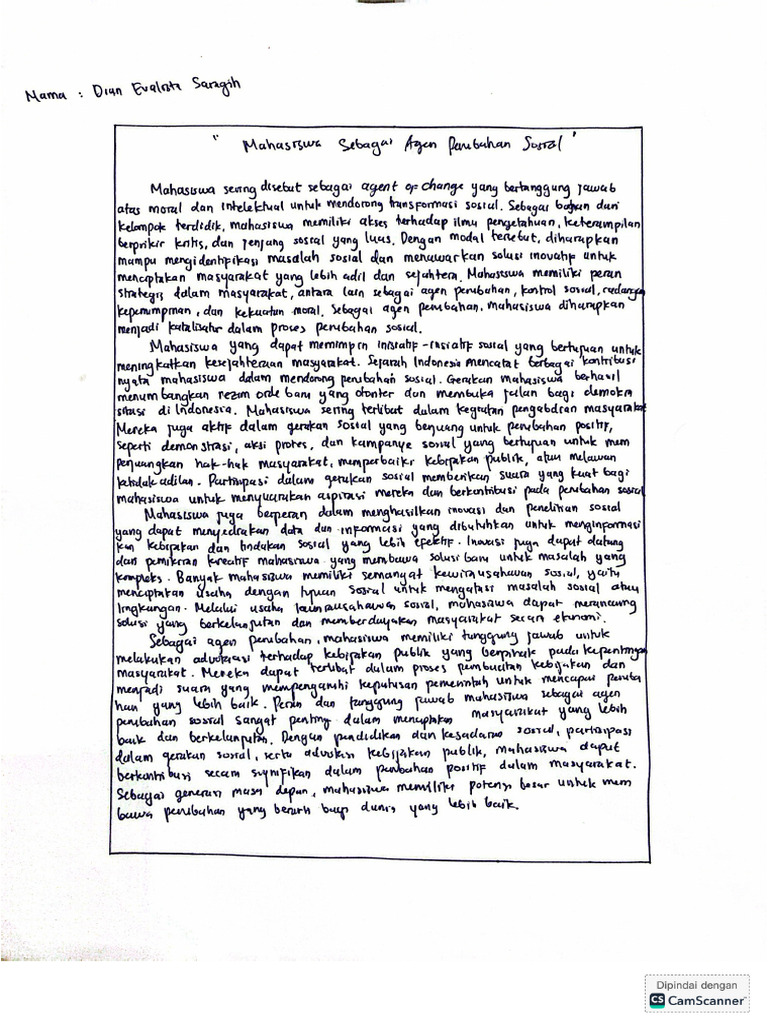 Nama : Dian Evalista Saragih
" Mahasiswa Sebagai Agen Perubahan Sosial "
Mahasiswa sering disebut sebagai agent of change yang bertanggung jawab
atas moral dan intelektual untuk mendorong transformasi sosial. Sebagai bagian dari
kelompok terdidik, mahasiswa memiliki akses terhadap ilmu pengetahuan, keterampilan
berpikir kritis, dan jenjang sosial yang luas. Dengan modal tersebut, diharapkan
mampu mengidentifikasi masalah sosial dan menawarkan solusi inovatif untuk
menciptakan masyarakat yang lebih adil dan sejahtera. Mahasiswa memiliki peran
strategis dalam masyarakat, antara lain sebagai agen perubahan, kontrol sosial, cadangan
kepemimpinan, dan kekuatan moral. Sebagai agen perubahan, mahasiswa diharapkan
menjadi katalisator dalam proses perubahan sosial.
Mahasiswa yang dapat memimpin inisiatif-inisiatif sosial yang bertujuan untuk
meningkatkan kesejahteraan masyarakat. Sejarah Indonesia mencatat berbagai kontribusi
nyata mahasiswa dalam mendorong perubahan sosial. Gerakan mahasiswa berhasil
menumbangkan rezim orde baru yang otoriter dan membuka jalan bagi demokra
sitasi di Indonesia. Mahasiswa sering terlibat dalam kegiatan pengabdian masyarakat
Mereka juga aktif dalam gerakan sosial yang berjuang untuk perubahan positif,
seperti demonstrasi, aksi protes, dan kampanye sosial yang bertujuan untuk mem
perjuangkan hak-hak masyarakat, memperbaiki kebijakan publik, atau melawan
ketidakadilan. Partisipasi dalam gerakan sosial memberikan suara yang kuat bagi
mahasiswa untuk menyuarakan aspirasi mereka dan berkontribusi pada perubahan sosial
Mahasiswa juga berperan dalam menghasilkan inovasi dan penelitian sosial
yang dapat menyediakan data dan informasi yang dibutuhkan untuk menginformasi
kan kebijakan dan tindakan sosial yang lebih efektif. Inovasi juga dapat datang
dari pemikiran kreatif mahasiswa yang membawa solusi baru untuk masalah yang
kompleks. Banyak mahasiswa memiliki semangat kewirausahawan sosial, yaitu
menciptakan usaha dengan tujuan sosial untuk mengatasi masalah sosial atau
lingkungan. Melalui usaha sosial, mahasiswa dapat merancang
solusi yang berkelanjutan dan memberdayakan masyarakat secara ekonomi.
Sebagai agen perubahan, mahasiswa memiliki tanggung jawab untuk
melakukan advokasi terhadap kebijakan publik yang berpihak pada kepentingan
masyarakat. Mereka dapat terlibat dalam proses pembuatan kebijakan dan
menjadi suara yang mempengaruhi keputusan pemerintah untuk mencapai peruba
han yang lebih baik. Peran dan tanggung jawab mahasiswa sebagai agen
perubahan sosial sangat penting dalam menciptakan masyarakat yang lebih
baik dan berkelanjutan. Dengan pendidikan dan kesadaran sosial, partisipasi
dalam gerakan sosial, serta advokasi kebijakan publik, mahasiswa dapat
berkontribusi secara signifikan dalam perubahan positif dalam masyarakat.
Sebagai generasi masa depan, mahasiswa memiliki potensi besar untuk mem
bawa perubahan yang berarti bagi dunia yang lebih baik.
Dipindai dengan
CS CamScanner